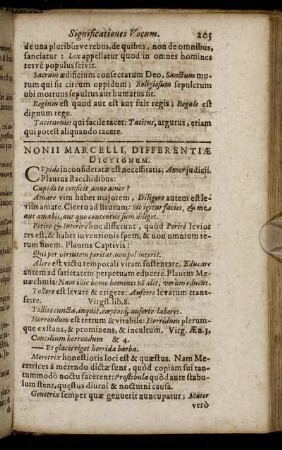 Significationes Vocum. 205
de una pluribusve rebus, de quibus, non de omnibus,
sanciatur: Lex appellatur quod in omnes homines
resve populus scivit.
Sacrum ædificium consecratum Deo, Sanctum mu-
rum qui sit circum oppidum; Religiosum sepulcrum
ubi mortuus sepultus aut humatus sit.
Regium est quod aut est aut fuit regis; Regale est
dignum rege.
Taciturnus qui facile tacet: Tacitus, argutus, etiam
qui potest aliquando tacere.
NONII MARCELLI, DIFFERENTIÆ
DICTIONUM.
CUpido inconsideratæ est necessitatis, Amor judicii.
Plautus Bacchidibus:
Cupido te conficit anne amor?
Amare vim habet majorem, Diligere autem est le-
viús amate. Cicero ad Brutum:
Perire & Interire hoc distent, quod Perire levior
res est, & habet inventionis spem, & non omnium re-
rum finem. Plautus Captivis:
Qui per virtutem peritat, non interit.
Alere est victu temporali vitam sustentare. Educare
autem ad satietatem perpetuam educere. Plautus Me-
næchmis: Nam illic homo homines non alit, verum educat.
Tollere est levare & erigere: Auferre levatum trans-
ferre. Virgil. lib. 8.
Tollite cuncta, inquit, cœptosque auferte labores.
Horrendum est tetrum & virabile: Horridum plerum-
que extans, & prominens, & incultum. Virg. Æn. 3.
Concilium horrendum & 4.
— Et glacie riget horrida barba.
Meretrix honestioris loci est & quæstus. Nam Me-
retrices à merendo dictæ sunt, quòd copiam sui tan-
tummodo noctu facerent: Prostibula quòd ante stabu-
lum stent, quæstus diurni & nocturni causa.
Genetrix semper quæ genuerit nuncupatur, Mater
verò